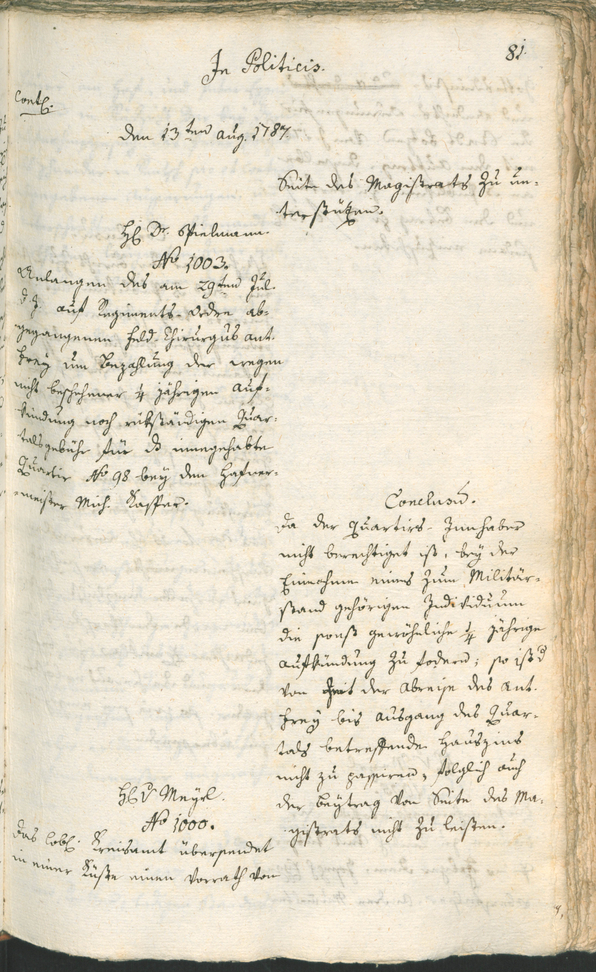 81.
In Politicis.
Conts.
den 13ten aug. 1787
Seite des Magistrats zu un-
terstützen.
H. Dr. Spielmann.
No 1003.
Anlangen des am 29ten Jul.
d. J. auf Regiments-Ordre ab-
gegangenen Feld-Chirurgus Ant.
Frey um Bezahlung der wegen
nicht beschehener ¼ jährigen Auf-
kündung noch rükständigen Quar-
talsgebühr für d innegehabte
Quartier No 98 bey dem Hafner-
meister Mich. Kasper.
Conclusum.
Da der Quartirs Innhaber
nicht berechtiget ist, bey der
Einnahme eines zum Militär-
stand gehörigen Individuum
die sonst gewöhnliche ¼ jährige
Aufkündung zu fodern; so ist d
von Zeit der Abreise des Ant.
Frey bis Ausgang des Quar-
tals betreffende Hauszins
nicht zu passiren, folglich auch
der Beytrag von Seite des Ma-
gistrats nicht zu leisten.
H. v Meyrl.
No 1000.
Das löbl. Kreisamt übersendet
in einer Küste einen Vorrath von